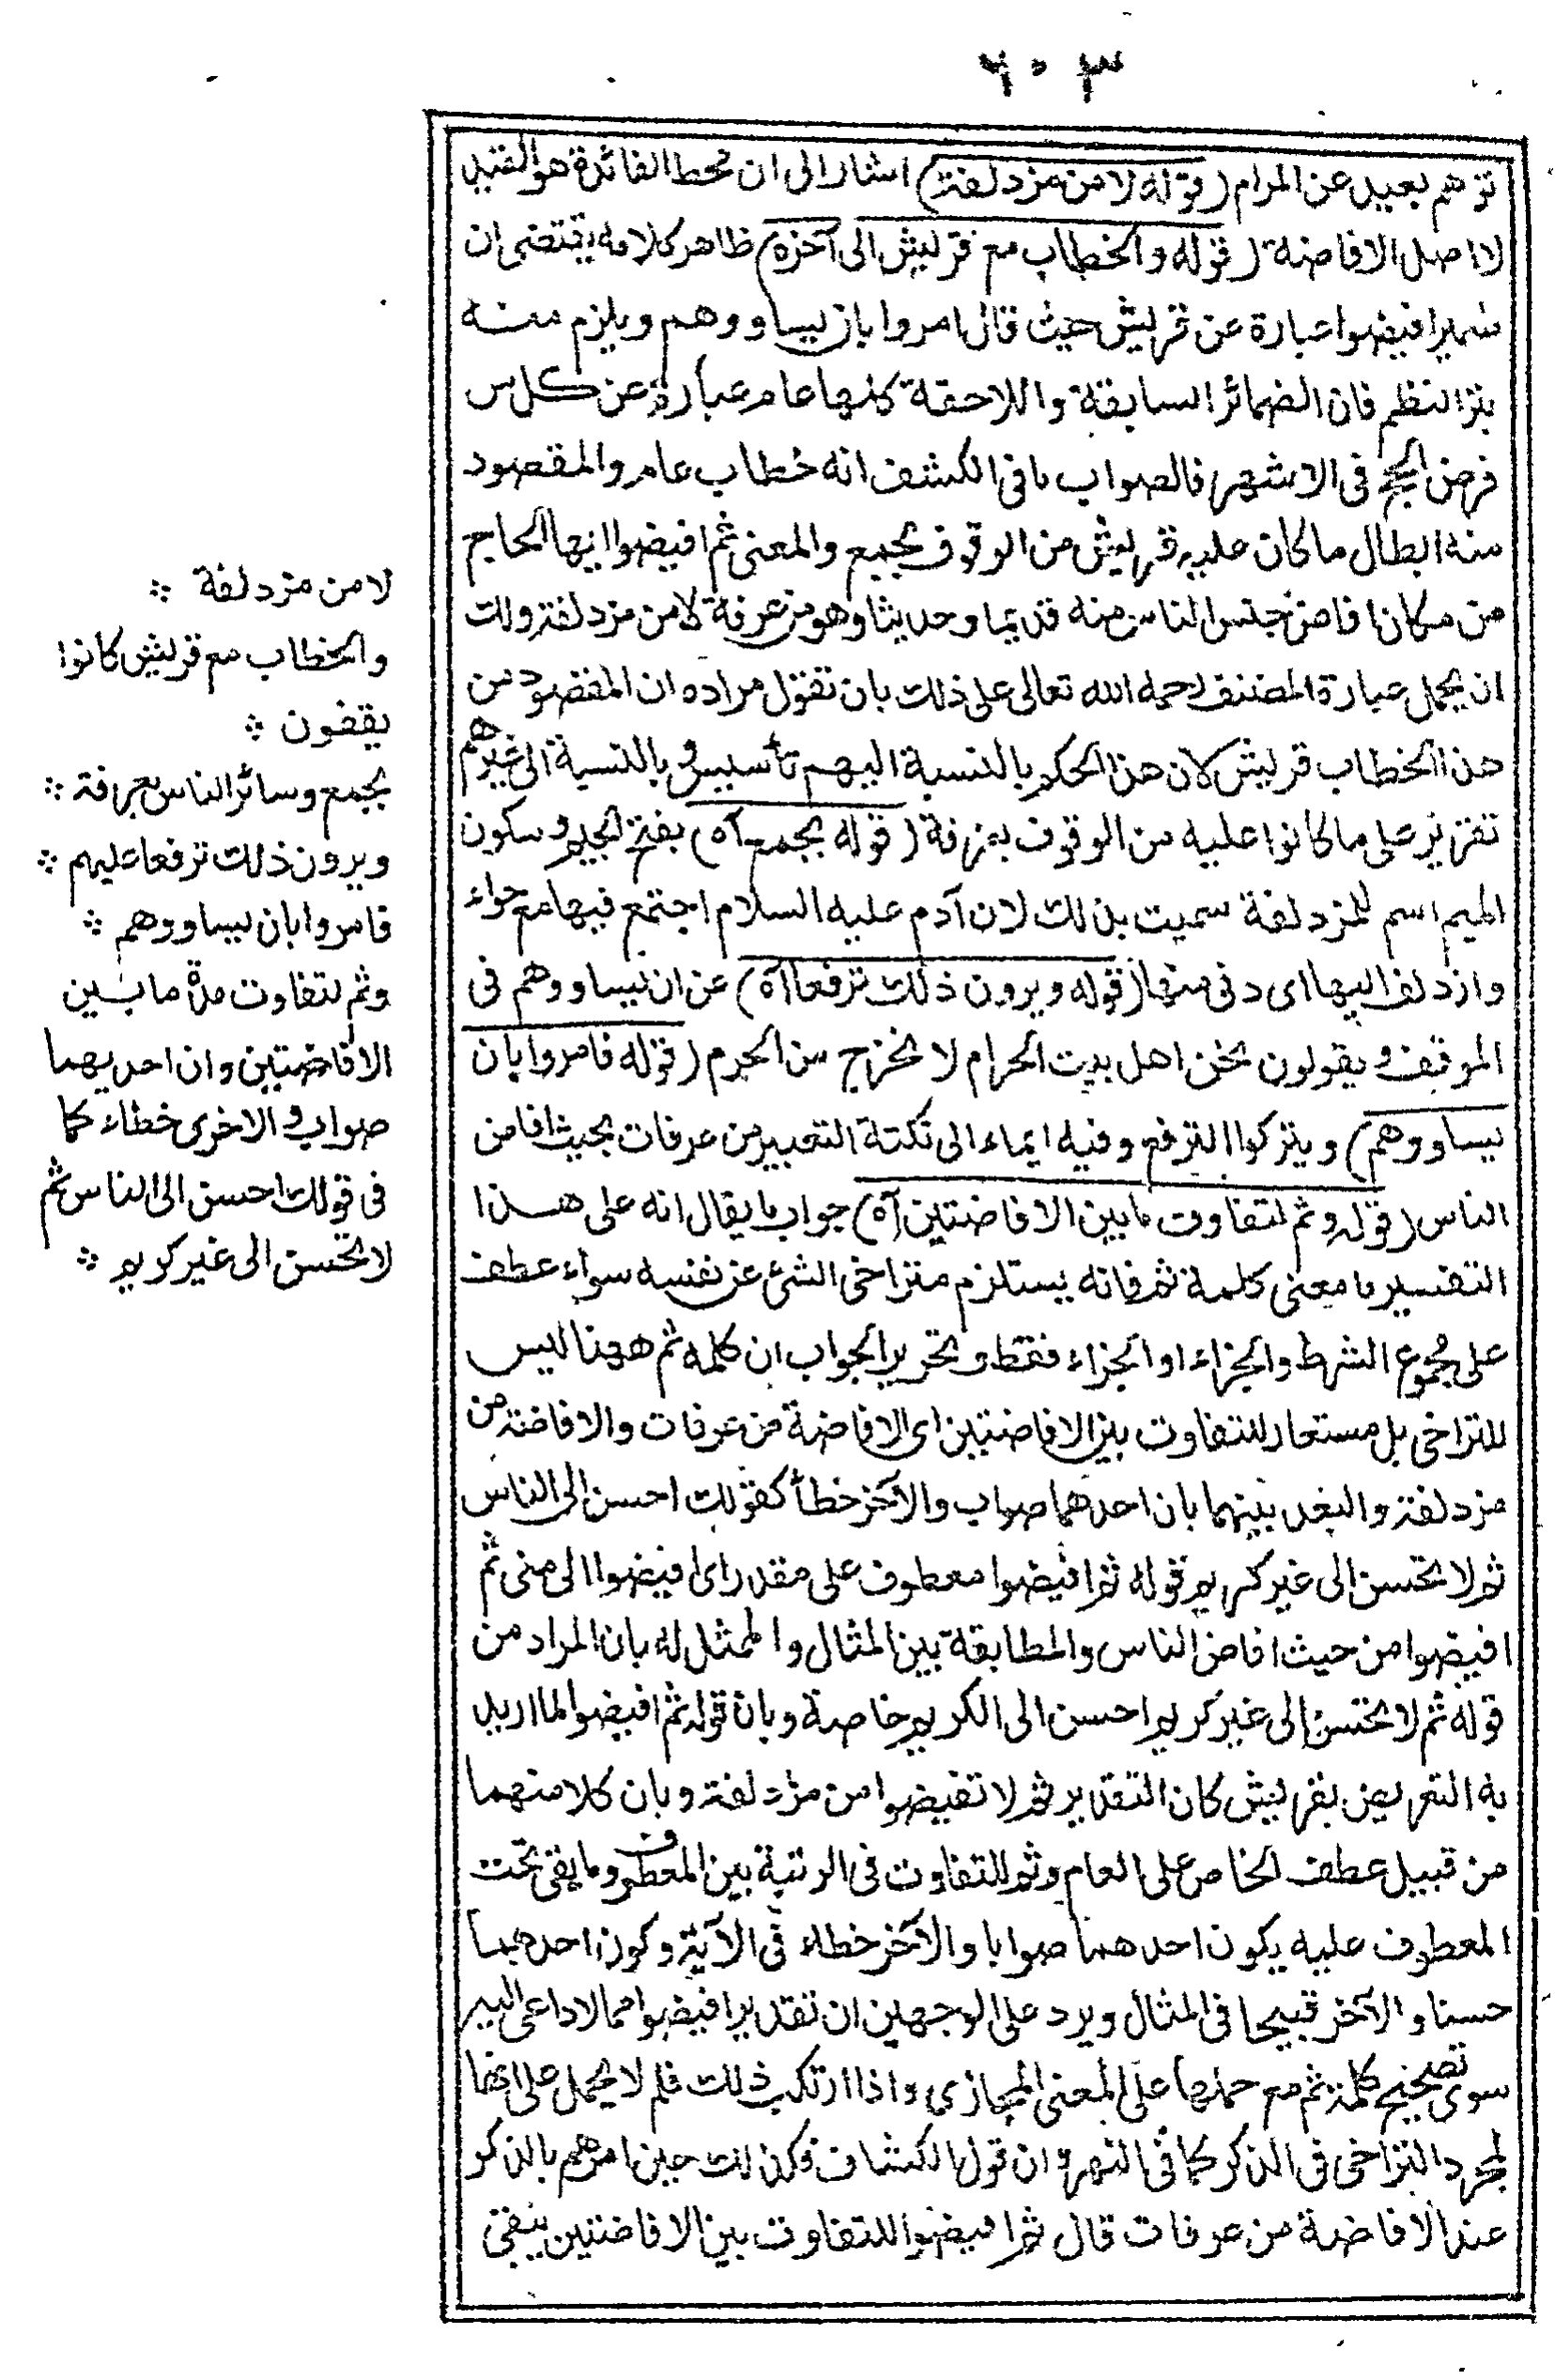 ٦٠٣
توهم بعيد عن المرام (قوله لا من مزدلفة) اشار الى ان محط الفائدة هو القيد
لا اصل الافاضة (قوله والخطاب مع قريش الى آخره) ظاهر كلامه يقتضى ان
ضمير افيضوا عبارة عن قريش حيث قال امروا بان يساووهم ويلزم منه
بتر النظم فان الضمائر السابقة واللاحقة كلها عام عبارة عن كل من
فرض الحج فى الاشهر فالصواب ما فى الكشف انه خطاب عام والمقصود
منه ابطال ما كان عليه قريش من الوقوف بجمع والمعنى ثم افيضوا ايها الحاج
من مكان افاض جنس الناس منه قديما وحديثا وهو من عرفة لا من مزدلفة ولك
ان يحمل عبارة المصنف رحمه الله تعالى على ذلك بان تقول مراده ان المقصود من
هذا الخطاب قريش لان هذا الحكم بالنسبة اليهم تأسيس و بالنسبة الى غيرهم
تقرير على ما كانوا عليه من الوقوف بعرفة (قوله بجمع آه) بفتح الجيم وسكون
الميم اسم للمزدلفة سميت بذلك لان آدم عليه السلام اجتمع فيها مع حواء
وازدلف اليها اى دنى منها (قوله ويرون ذلك ترفعا آه) عن ان يساووهم فى
الموقف و يقولون نحن اهل بيت الحرام لا نخرج من الحرم (قوله فامروا بان
يساووهم) ويتركوا الترفع وفيه ايماء الى نكتة التعبير من عرفات بحيث افاض
الناس (قوله وثم لتفاوت ما بين الافاضتين آه) جواب ما يقال انه على هذا
التفسير ما معنى كلمة ثم فانه يستلزم متراخى الشئ عن نفسه سواء عطف
على مجموع الشرط والجزاء او الجزاء فقط وتحرير الجواب ان كلمه ثم ههنا ليس
للتراخى بل مستعار للتفاوت بين الافاضتين اى الافاضة من عرفات والافاضة من
مزدلفة والبعد بينهما بان احدهما صواب والآخر خطأ كقولك احسن الى الناس
ثم لا تحسن الى غير كريم قوله ثم افيضوا معطوف على مقدر اى افيضوا الى منى ثم
افيضوا من حيث افاض الناس والمطابقة بين المثال والممثل له بان المراد من
قوله ثم لا تحسن الى غير كريم احسن الى الكريم خاصة وبان قوله ثم افيضوا لما اريد
به التعريض بقريش كان التقدير ثم لا تفيضوا من مزدلفة وبان كلا منهما
من قبيل عطف الخاص على العام وثم للتفاوت فى الرتبة بين المعطوف وما بقى تحت
المعطوف عليه يكون احدهما صوابا والآخر خطاء فى الآية وكون احدهما
حسنا والآخر قبيحا فى المثال ويرد على الوجهين ان تقدير افيضوا مما لا داعى اليه
سوى تصحيح كلمة ثم مع حملها على المعنى المجازى واذا ارتكب ذلك فلم لا يحمل على انها
لمجرد التراخى فى الذكر كما فى النهر وان قول الكشاف فكذلك حين امرهم بالذكر
عند الافاضة من عرفات قال ثم افيضوا للتفاوت بين الافاضتين ينفى
لا من مزدلفة ❊
والخطاب مع قريش كانوا
يقفون ❊
بجمع وسائر الناس بعرفة ❊
ويرون ذلك ترفعا عليهم ❊
فامروا بان يساووهم ❊
وثم لتفاوت مدة ما بين
الافاضتين وان احديهما
صواب و الاخرى خطاء كما
فى قولك احسن الى الناس ثم
لا تحسن الى غير كريم ❊